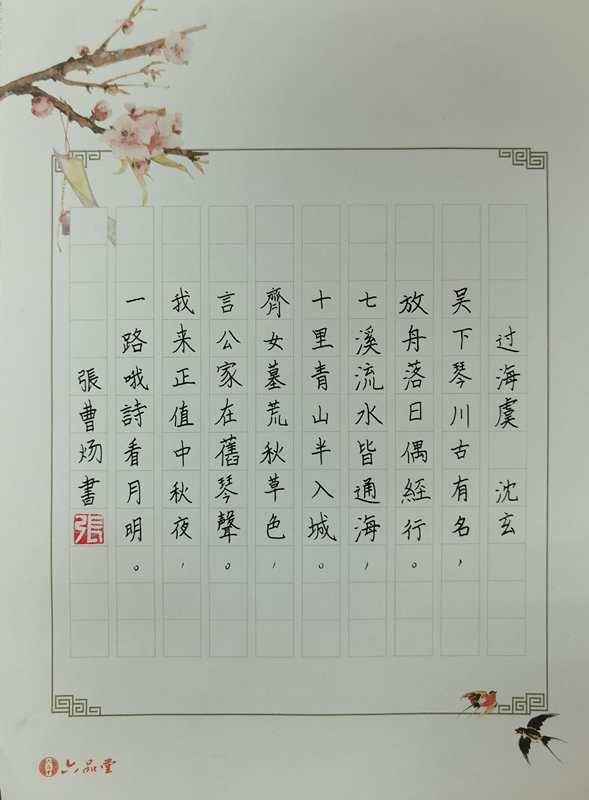 过海虞 沈玄
吴下琴川古有名，
放舟落日偶經行。
七溪流水皆通海，
十里青山半入城。
齊女墓荒秋草色，
言公家在舊琴聲。
我来正值中秋夜，
一路哦詩看月明。
張曹炀書
張
六品堂